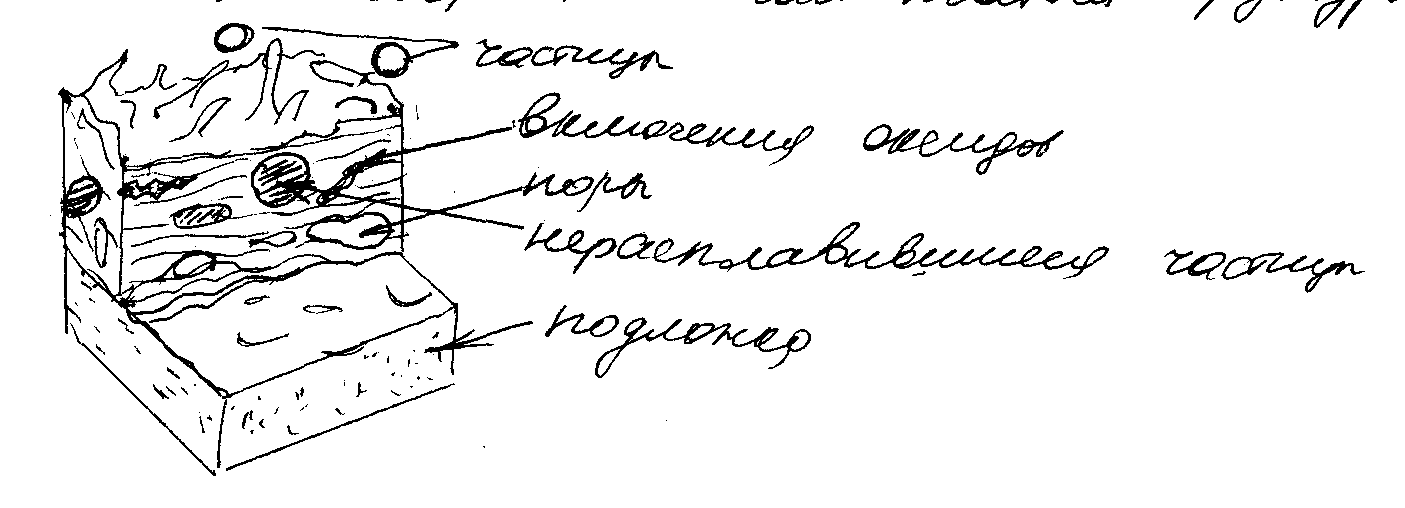 частицы
включения оксидов
поры
нерасплавившиеся частицы
подложка